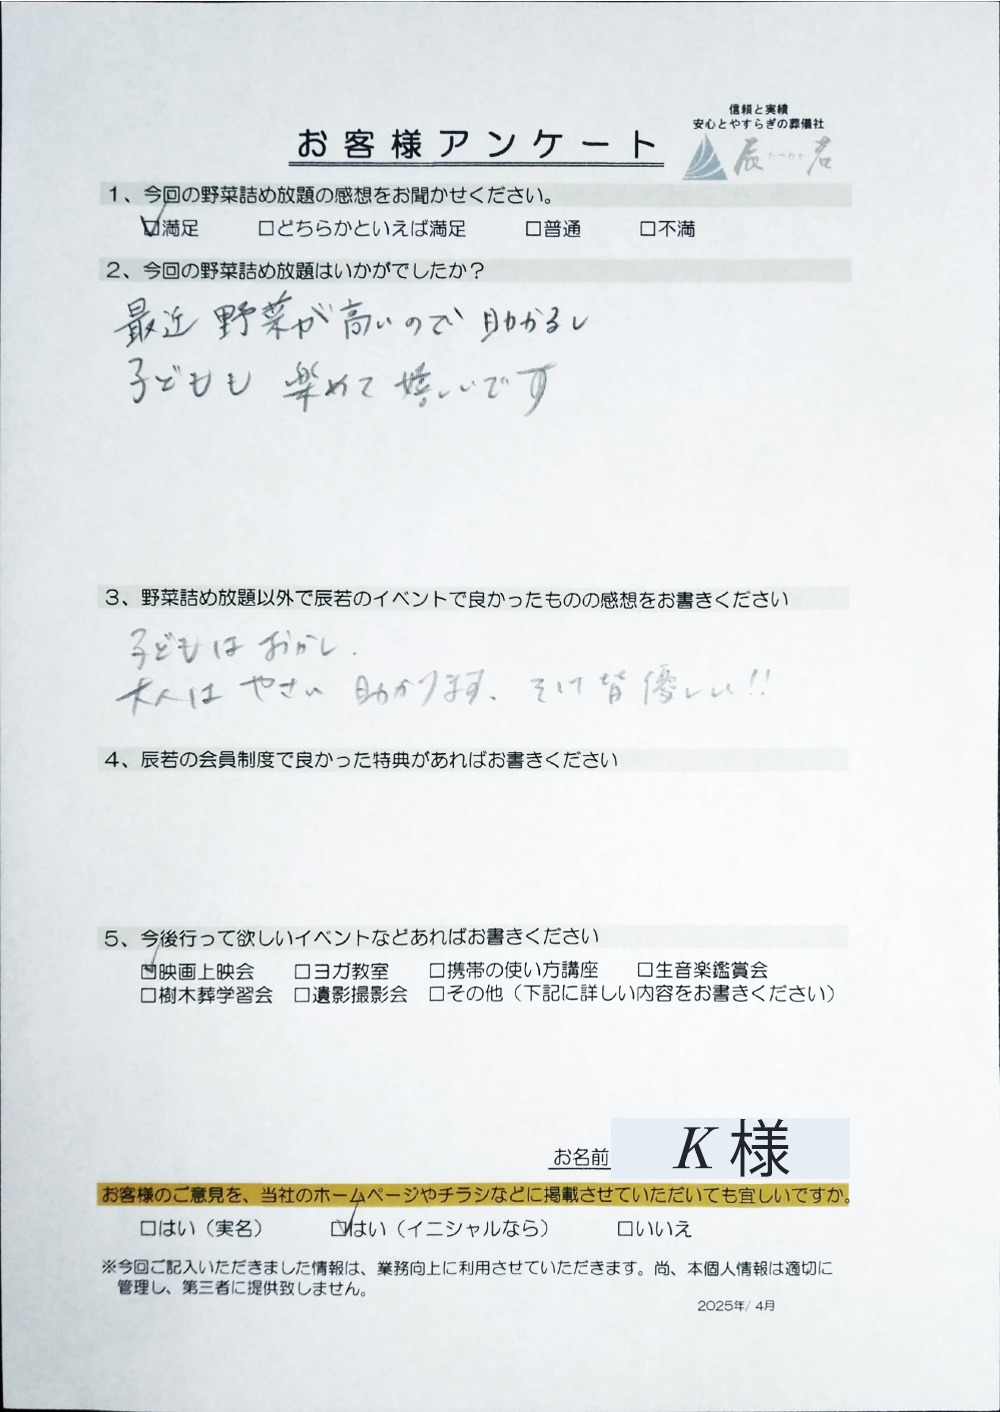 信頼と実績
安心とやすらぎの葬儀社
お客様アンケート
辰若
たつわか
1、今回の野菜詰め放題の感想をお聞かせください。
☑満足 □どちらかといえば満足 □普通 □不満
2、今回の野菜詰め放題はいかがでしたか？
最近 野菜が高いので 助かるし
子どもも 楽めて 嬉しいです
3、野菜詰め放題以外で辰若のイベントで良かったものの感想をお書きください
子どもは おかし.
大人は やさい 助かります、 皆 優しい!!
4、辰若の会員制度で良かった特典があればお書きください
5、今後行って欲しいイベントなどあればお書きください
☑映画上映会 □ヨガ教室 □携帯の使い方講座 □生音楽鑑賞会
□樹木葬学習会 □遺影撮影会 □その他（下記に詳しい内容をお書きください）
お名前 K 様
お客様のご意見を、当社のホームページやチラシなどに掲載させていただいても宜しいですか。
□はい（実名） ☑はい（イニシャルなら） □いいえ
※今回ご記入いただきました情報は、業務向上に利用させていただきます。尚、本個人情報は適切に
管理し、第三者に提供致しません。
2025年/ 4月